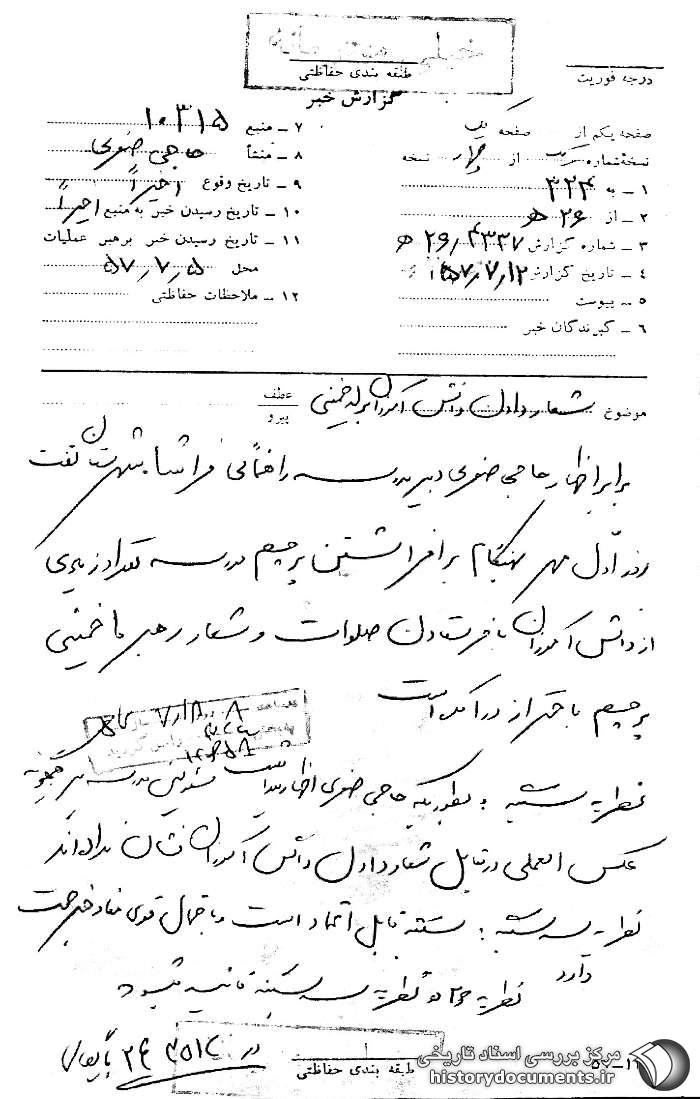 طبقه بندی حفاظتی
درجه فوریت
گزارش خبر
صفحه یکم از یک صفحه
نسخه شماره یک از چهار نسخه
۱ ـ به ۳۲۴
۲ ـ از ۲۶ ه
۳ ـ شماره گزارش ۴۳۳۷/۲۶ ه
۴ ـ تاریخ گزارش ۵۷/۷/۱۲
۵ ـ پیوست
۶ ـ گیرندگان خبر
۷ ـ منبع ۱۰۳۱۵
۸ ـ منشأ حاجی صفری
۹ ـ تاریخ وقوع اخیراً
۱۰ ـ تاریخ رسیدن خبر به منبع اخیراً
۱۱ ـ تاریخ رسیدن خبر برهبر عملیات
محل ۵۷/۷/۵
۱۲ ـ ملاحظات حفاظتی
موضوع شعار دادن دانش آموزان برله خمینی
عطف
پیرو
برابر اظهار حاجی صفری دبیر مدرسه راهنمائی فراشا شهرستان تفت
روز اول مهر هنگام برافراشتن پرچم مدرسه تعداد زیادی
از دانش آموزان با فرستادن صلوات و شعار رهبر ما خمینی
پرچم باهتزاز درآمده است
نظریه شنبه : بطوریکه حاجی صفری اظهار میداشت مسئولین مدرسه هیچگونه
عکس العملی در مقابل شعار دادن دانش آموزان نشان نداده‌اند
نظریه سه شنبه : شنبه قابل اعتماد است و باحتمال قوی مفاد خبر صحت
دارد
نظریه سه شنبه تائید میشود
طبقه بندی حفاظتی
مرکز بررسی اسناد تاریخی
historydocuments.ir